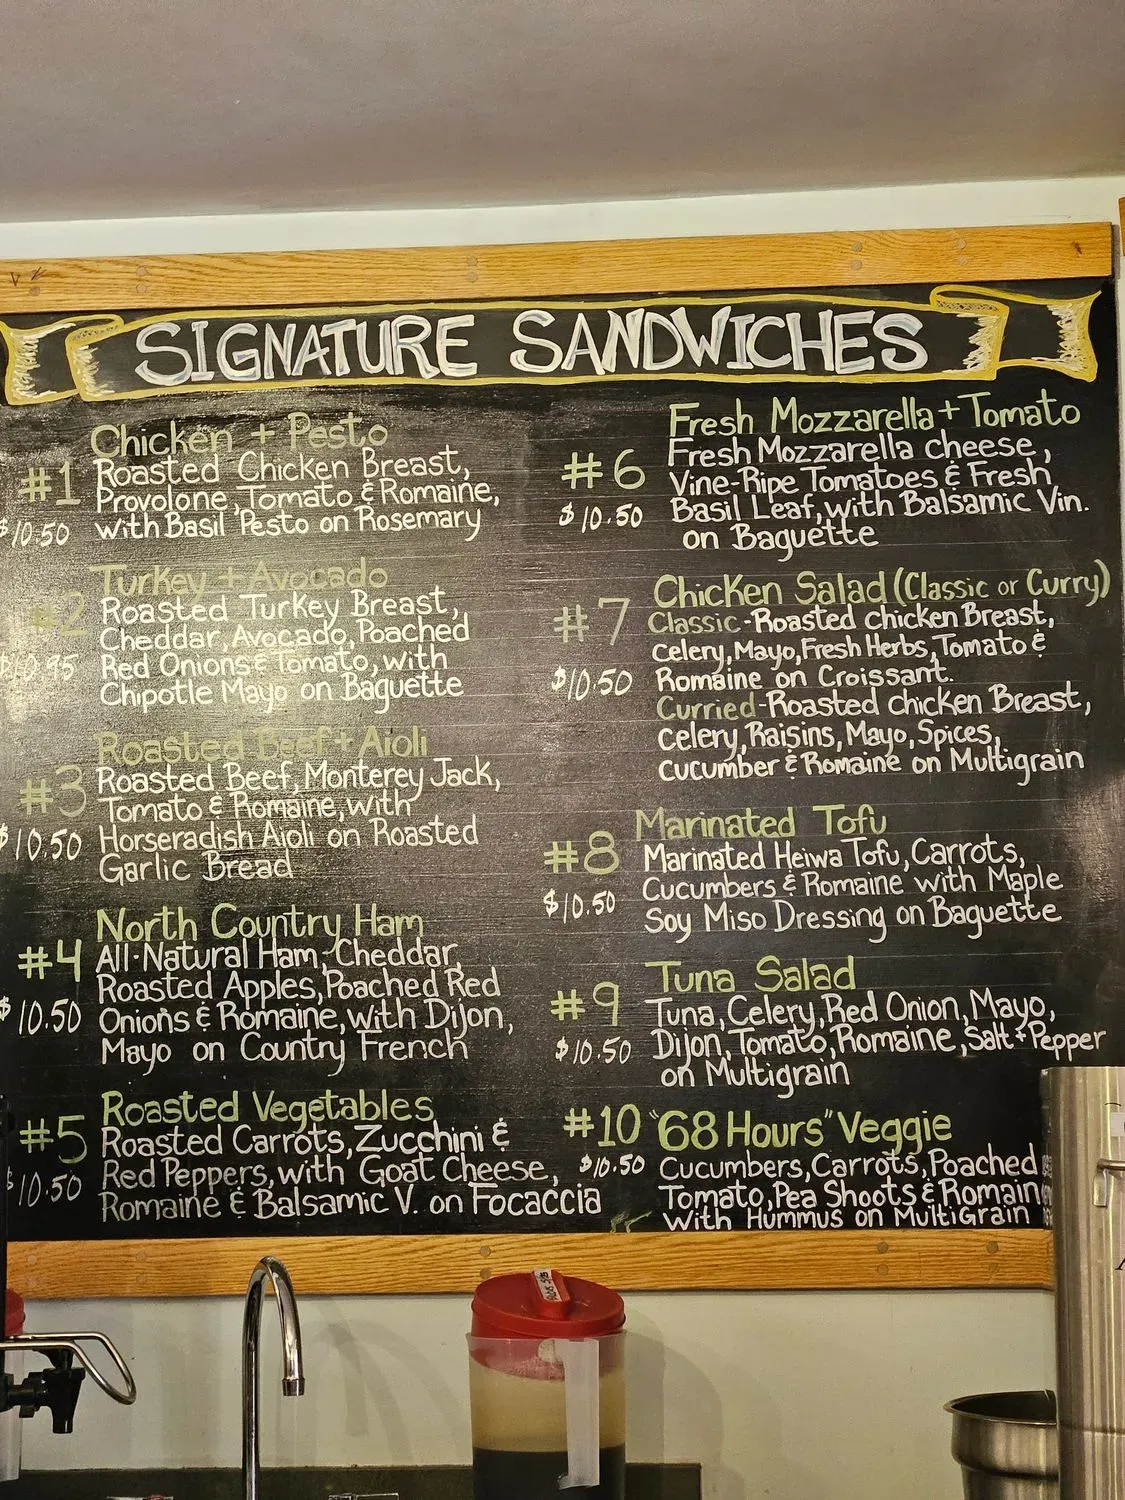 SIGNATURE SANDWICHES
Chicken + Pesto
#1
Roasted Chicken Breast,
Provolone, Tomato & Romaine,
$10.50
with Basil Pesto on Rosemary
Turkey + Avocado
#2
Roasted Turkey Breast,
Cheddar, Avocado, Poached
$10.95
Red Onions & Tomato, with
Chipotle Mayo on Baguette
Roasted Beef + Aioli
#3
Roasted Beef, Monterey Jack,
Tomato & Romaine, with
$10.50
Horseradish Aioli on Roasted
Garlic Bread
North Country Ham
#4
All-Natural Ham, Cheddar,
Roasted Apples, Poached Red
$10.50
Onions & Romaine, with Dijon,
Mayo on Country French
Roasted Vegetables
#5
Roasted Carrots, Zucchini &
Red Peppers, with Goat Cheese,
$10.50
Romaine & Balsamic V. on Focaccia
Fresh Mozzarella + Tomato
#6
Fresh Mozzarella cheese,
Vine-Ripe Tomatoes & Fresh
$10.50
Basil Leaf, with Balsamic Vin.
on Baguette
Chicken Salad (Classic or Curry)
#7
Classic - Roasted chicken Breast,
Celery, Mayo, Fresh Herbs, Tomato &
$10.50
Romaine on Croissant.
Curried - Roasted chicken Breast,
Celery, Raisins, Mayo, Spices,
Cucumber & Romaine on Multigrain
Marinated Tofu
#8
Marinated Heiwa Tofu, Carrots,
Cucumbers & Romaine with Maple
$10.50
Soy Miso Dressing on Baguette
Tuna Salad
#9
Tuna, Celery, Red Onion, Mayo,
Dijon, Tomato, Romaine, Salt + Pepper
$10.50
on Multigrain
#10 "68 Hours" Veggie
$10.50
Cucumbers, Carrots, Poached
Tomato, Pea Shoots & Romain
with Hummus on Multigrain